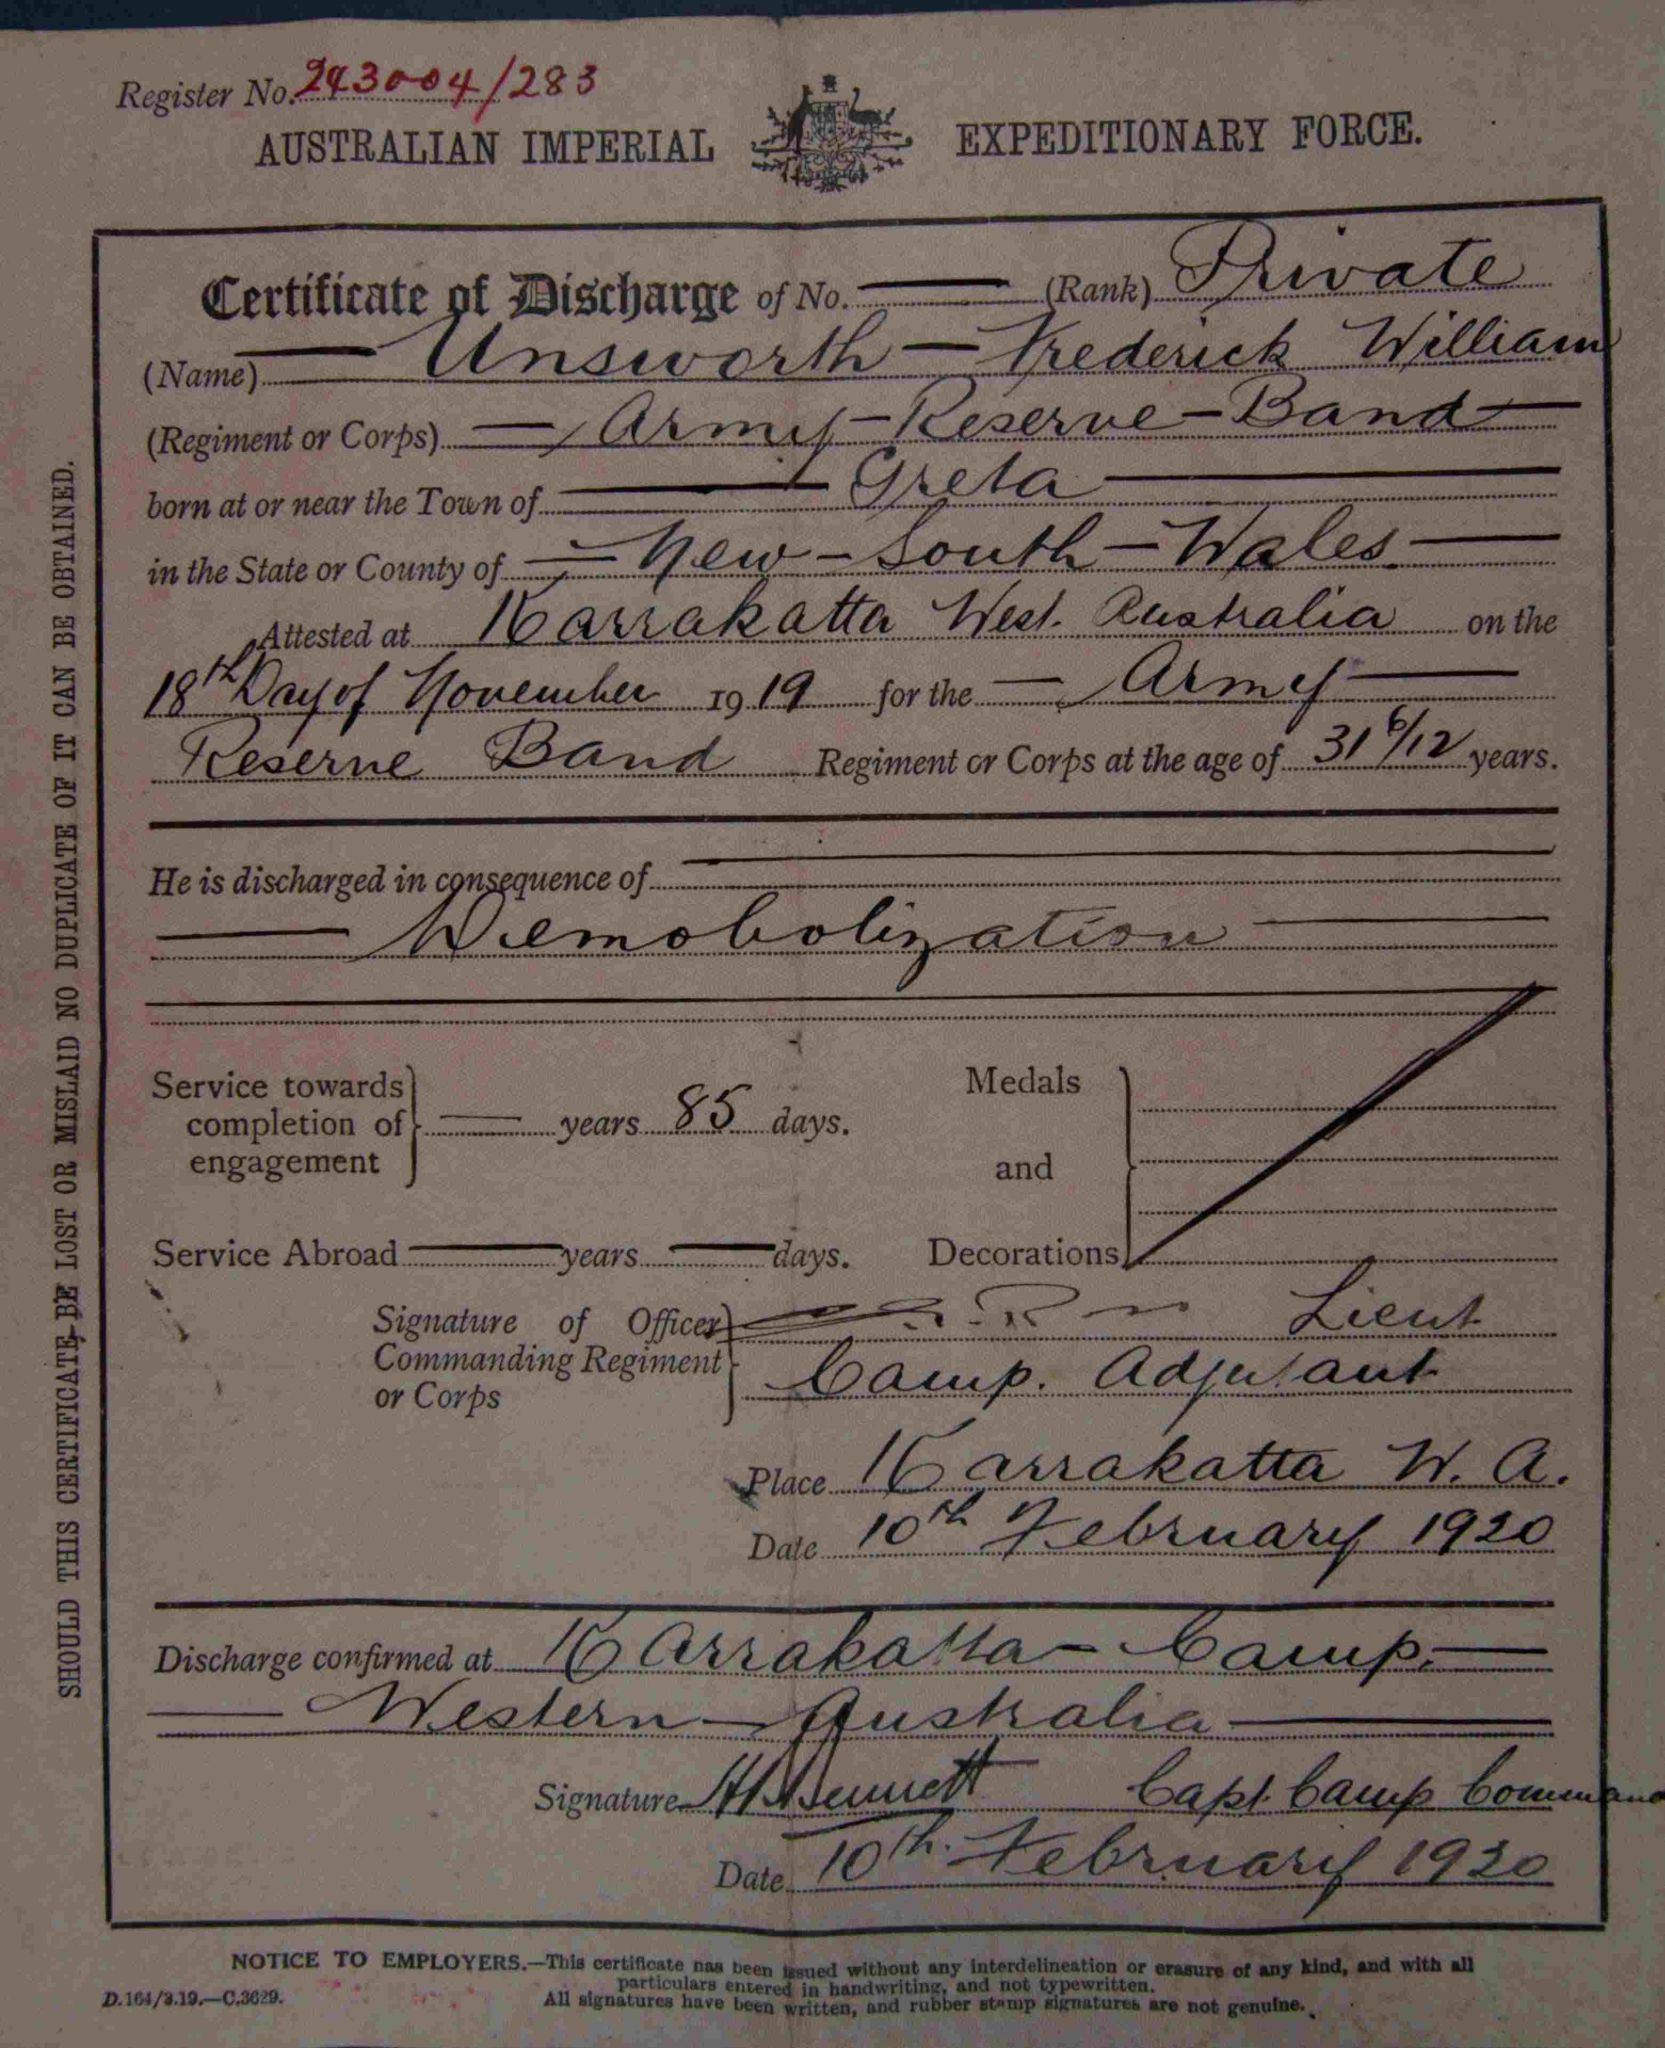 Register No. 243004/283
AUSTRALIAN IMPERIAL EXPEDITIONARY FORCE.
Certificate of Discharge of No. (Rank) Private
(Name) Unsworth – Frederick William
(Regiment or Corps) – Army – Reserve – Band –
born at or near the Town of Greta
in the State or County of – New – South – Wales. –
Attested at Karrakatta West. Australia on the
18th Day of November 1919 for the – Army –
Reserve Band Regiment or Corps at the age of 31 6/12 years.
He is discharged in consequence of
Demobolization
Service towards
completion of
engagement
years 85 days.
Medals
and
Decorations
Service Abroad years days.
Signature of Officer
Commanding Regiment
or Corps
Lieut
Camp. Adjutant
Place Karrakatta W. A.
Date 10th February 1920
Discharge confirmed at Karrakatta – Camp. –
Western – Australia
Signature Bennett Capt. Camp Command
Date 10th. February 1920
SHOULD THIS CERTIFICATE BE LOST OR MISLAID NO DUPLICATE OF IT CAN BE OBTAINED.
NOTICE TO EMPLOYERS.—This certificate has been issued without any interdelineation or erasure of any kind, and with all
particulars entered in handwriting, and not typewritten.
D.164/3.19.—C.3629. All signatures have been written, and rubber stamp signatures are not genuine.